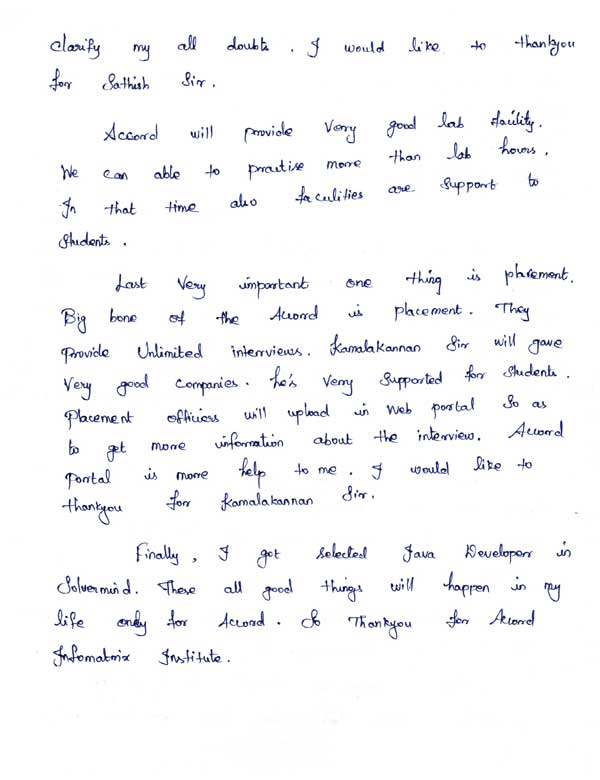 clarify my all doubts. I would like to thankyou
for Sathish Sir.
Accord will provide Very good lab facility.
We can able to practise more than lab hours.
In that time also faculities are support to
Students.
Last Very important one thing is placement.
Big bone of the Accord is placement. They
provide Unlimited interviews. Kamalakannan Sir will gave
Very good Companies. he's Very Supported for Students.
Placement officiers will upload in web portal So as
to get more information about the interview. Accord
portal is more help to me. I would like to
thankyou for Kamalakannan Sir.
Finally, I got selected Java Developer in
Solvermind. These all good things will happen in my
life only for Accord. So Thankyou for Accord
Infomatrix Institute.